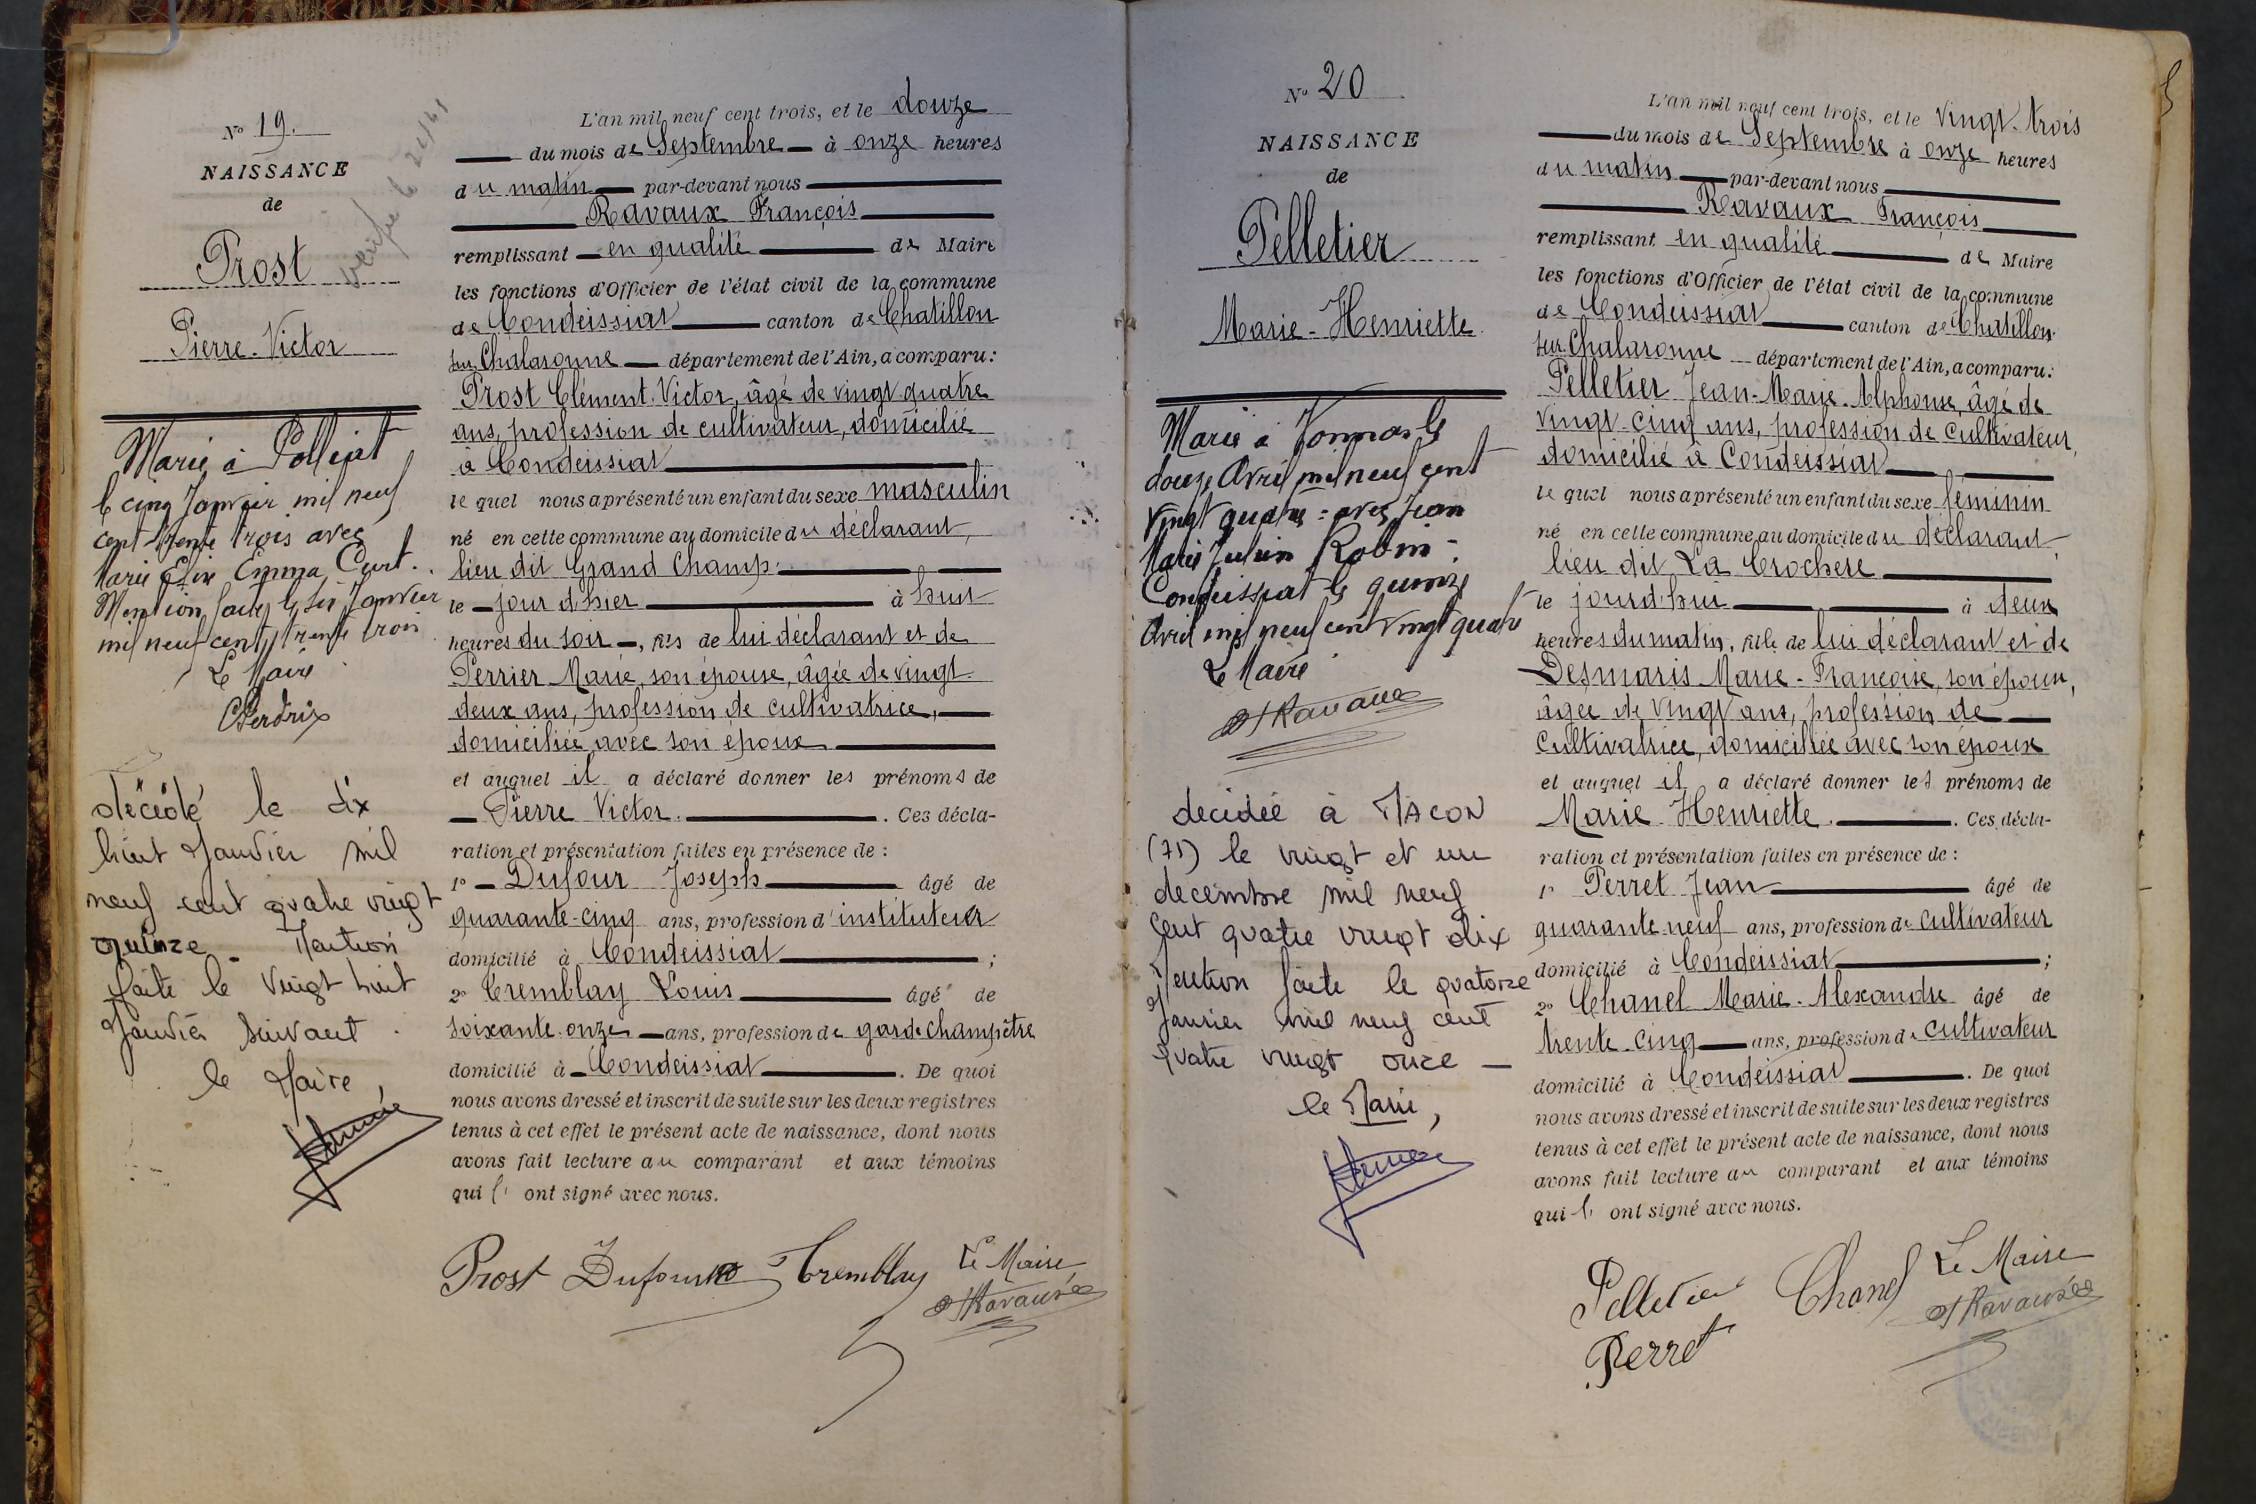 N° 19.
NAISSANCE
de
Prost
Pierre-Victor
Marié à Polliat
le cinq Janvier mil neuf
cent trente trois avec
Marie Elise Emma Curt.
Mention faite le six Janvier
mil neuf cent trente trois
Le Maire
décédé le dix
huit Janvier mil
neuf cent quatre vingt
quinze. Mention
faite le Vingt huit
Janvier suivant.
le Maire,
L'an mil neuf cent trois, et le douze
du mois de Septembre à onze heures
du matin par-devant nous
Ravaux François
remplissant en qualité de Maire
les fonctions d'Officier de l'état civil de la commune
de Condeissiat canton de Chatillon
sur Chalaronne département de l'Ain, a comparu:
Prost Clément-Victor, âgé de vingt-quatre
ans, profession de cultivateur, domicilié
à Condeissiat
le quel nous a présenté un enfant du sexe masculin
né en cette commune au domicile du déclarant,
lieu dit Grand Champ.
le jour d'hier à huit
heures du soir, fils de lui déclarant et de
Perrier Marie, son épouse, âgée de vingt-
deux ans, profession de cultivatrice,
domiciliée avec son époux
et auquel il a déclaré donner les prénoms de
Pierre Victor. Ces décla-
ration et présentation faites en présence de :
1° Dufour Joseph âgé de
quarante-cinq ans, profession d'instituteur
domicilié à Condeissiat ;
2° Tremblay Louis âgé de
soixante-onze ans, profession de garde champêtre
domicilié à Condeissiat. De quoi
nous avons dressé et inscrit de suite sur les deux registres
tenus à cet effet le présent acte de naissance, dont nous
avons fait lecture au comparant et aux témoins
qui l' ont signé avec nous.
Prost Dufour Tremblay Le Maire
Ravaux
N° 20
NAISSANCE
de
Pelletier
Marie-Henriette
Mariée à Vonnas le
douze Avril mil neuf cent
vingt quatre avec Jean
Marie Julien Robin
Condeissiat le quinze
Avril mil neuf cent vingt quatre
Le Maire
Ravaux
décédée à MACON
(71) le vingt et un
decembre mil neuf
cent quatre vingt dix
Mention faite le quatorze
Janvier mil neuf cent
quatre vingt onze
le Maire,
L'an mil neuf cent trois, et le vingt-trois
du mois de Septembre à onze heures
du matin par-devant nous
Ravaux François
remplissant en qualité de Maire
les fonctions d'Officier de l'état civil de la commune
de Condeissiat canton de Chatillon
sur Chalaronne département de l'Ain, a comparu:
Pelletier Jean-Marie-Alphonse, âgé de
vingt-cinq ans, profession de cultivateur,
domicilié à Condeissiat
le quel nous a présenté un enfant du sexe féminin
né en cette commune au domicile du déclarant,
lieu dit La Crochère
le jourd'hui à deux
heures du matin, fille de lui déclarant et de
Desmaris Marie-Françoise, son épouse,
âgée de vingt ans, profession de
cultivatrice, domiciliée avec son époux
et auquel il a déclaré donner les prénoms de
Marie Henriette. Ces décla-
ration et présentation faites en présence de :
1° Perret Jean âgé de
quarante-neuf ans, profession de cultivateur
domicilié à Condeissiat ;
2° Chanel Marie-Alexandre âgé de
trente-cinq ans, profession de cultivateur
domicilié à Condeissiat. De quoi
nous avons dressé et inscrit de suite sur les deux registres
tenus à cet effet le présent acte de naissance, dont nous
avons fait lecture au comparant et aux témoins
qui l' ont signé avec nous.
Pelletier Chanel Le Maire
Perret Ravaux